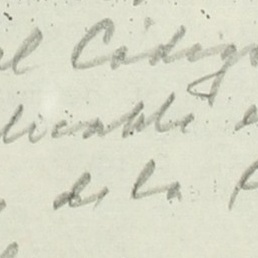 el Códig
licable e
de la